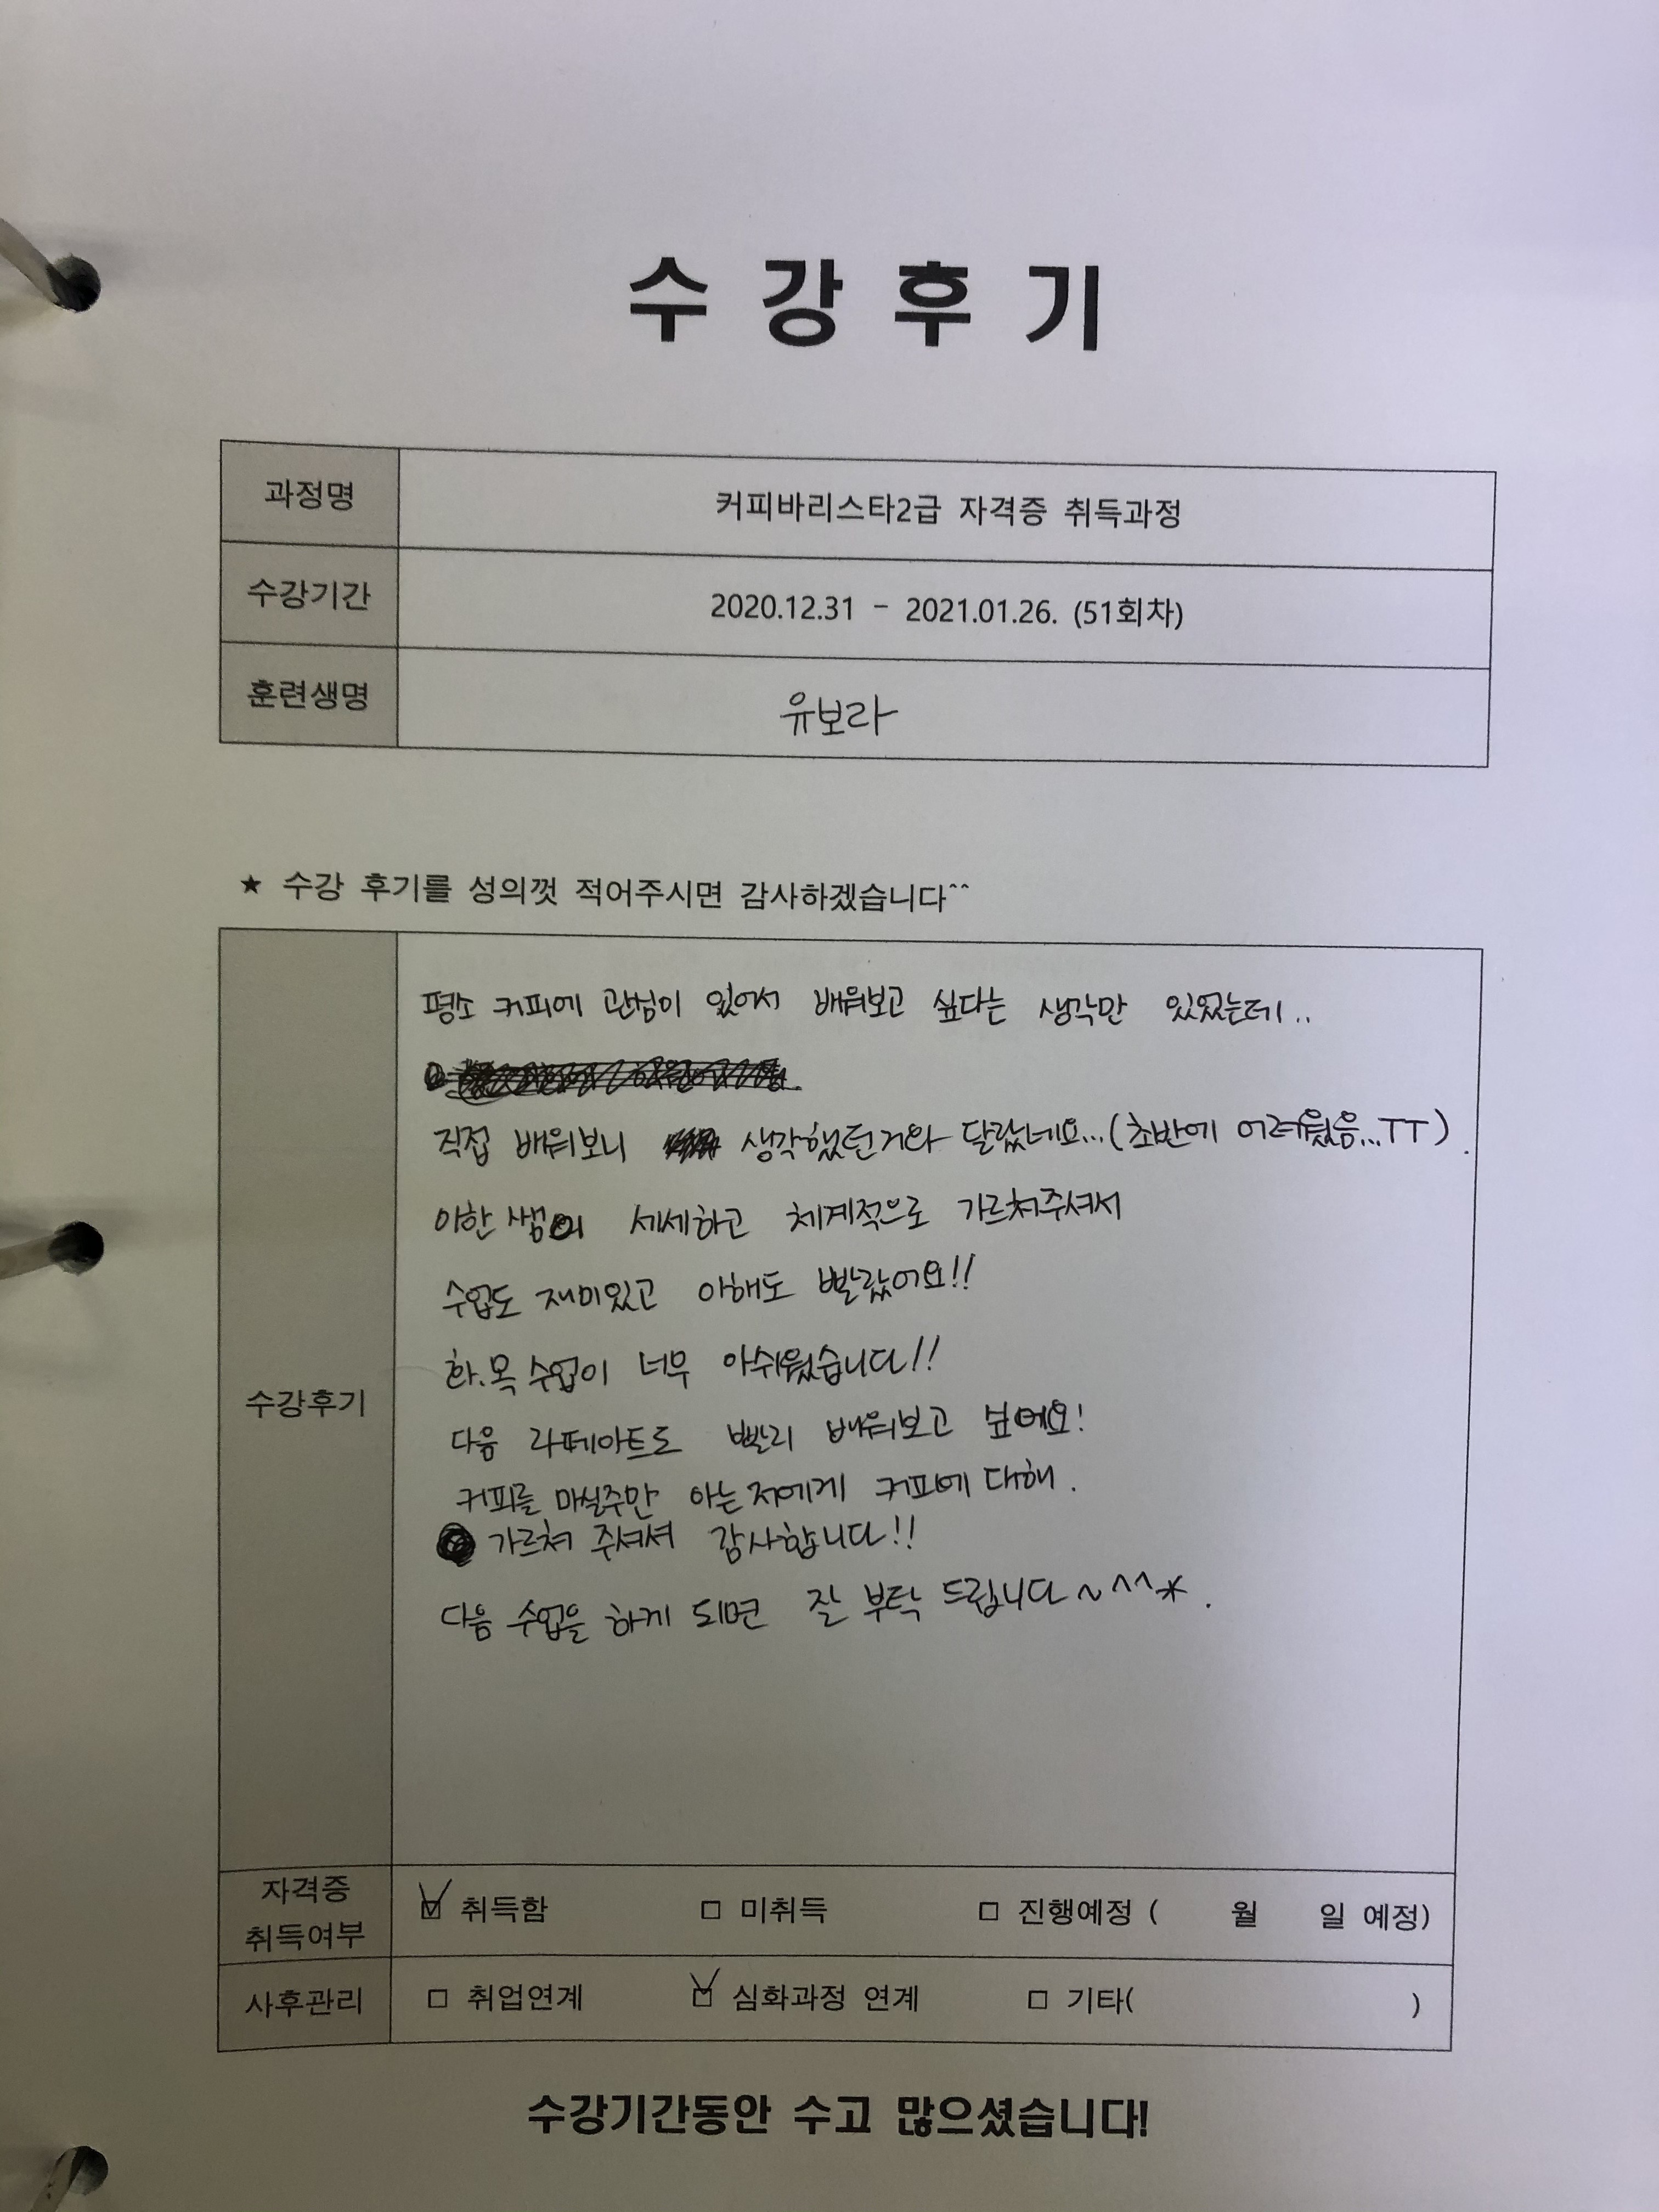 수강후기
과정명 커피바리스타2급 자격증 취득과정
수강기간 2020.12.31 - 2021.01.26. (51회차)
훈련생명 유보라
★ 수강 후기를 성의껏 적어주시면 감사하겠습니다^^
수강후기
평소 커피에 관심이 있어서 배워보고 싶다는 생각만 있었는데..
직접 배워보니 생각했던거와 달랐네요...(초반에 어려웠음...TT).
쌤이 세세하고 체계적으로 가르쳐주셔서
수업도 재미있고 이해도 빨랐어요!!
화.목 수업이 너무 아쉬웠습니다!!
다음 라떼아트도 빨리 배워보고 싶어요!
커피를 마실주만 아는 저에게 커피에 대해.
가르쳐 주셔셔 감사합니다!!
다음 수업을 하게 되면 잘 부탁 드립니다~^^*.
자격증 취득여부 ☑ 취득함 □ 미취득 □ 진행예정 ( 월 일 예정)
사후관리 □ 취업연계 ☑ 심화과정 연계 □ 기타( )
수강기간동안 수고 많으셨습니다!